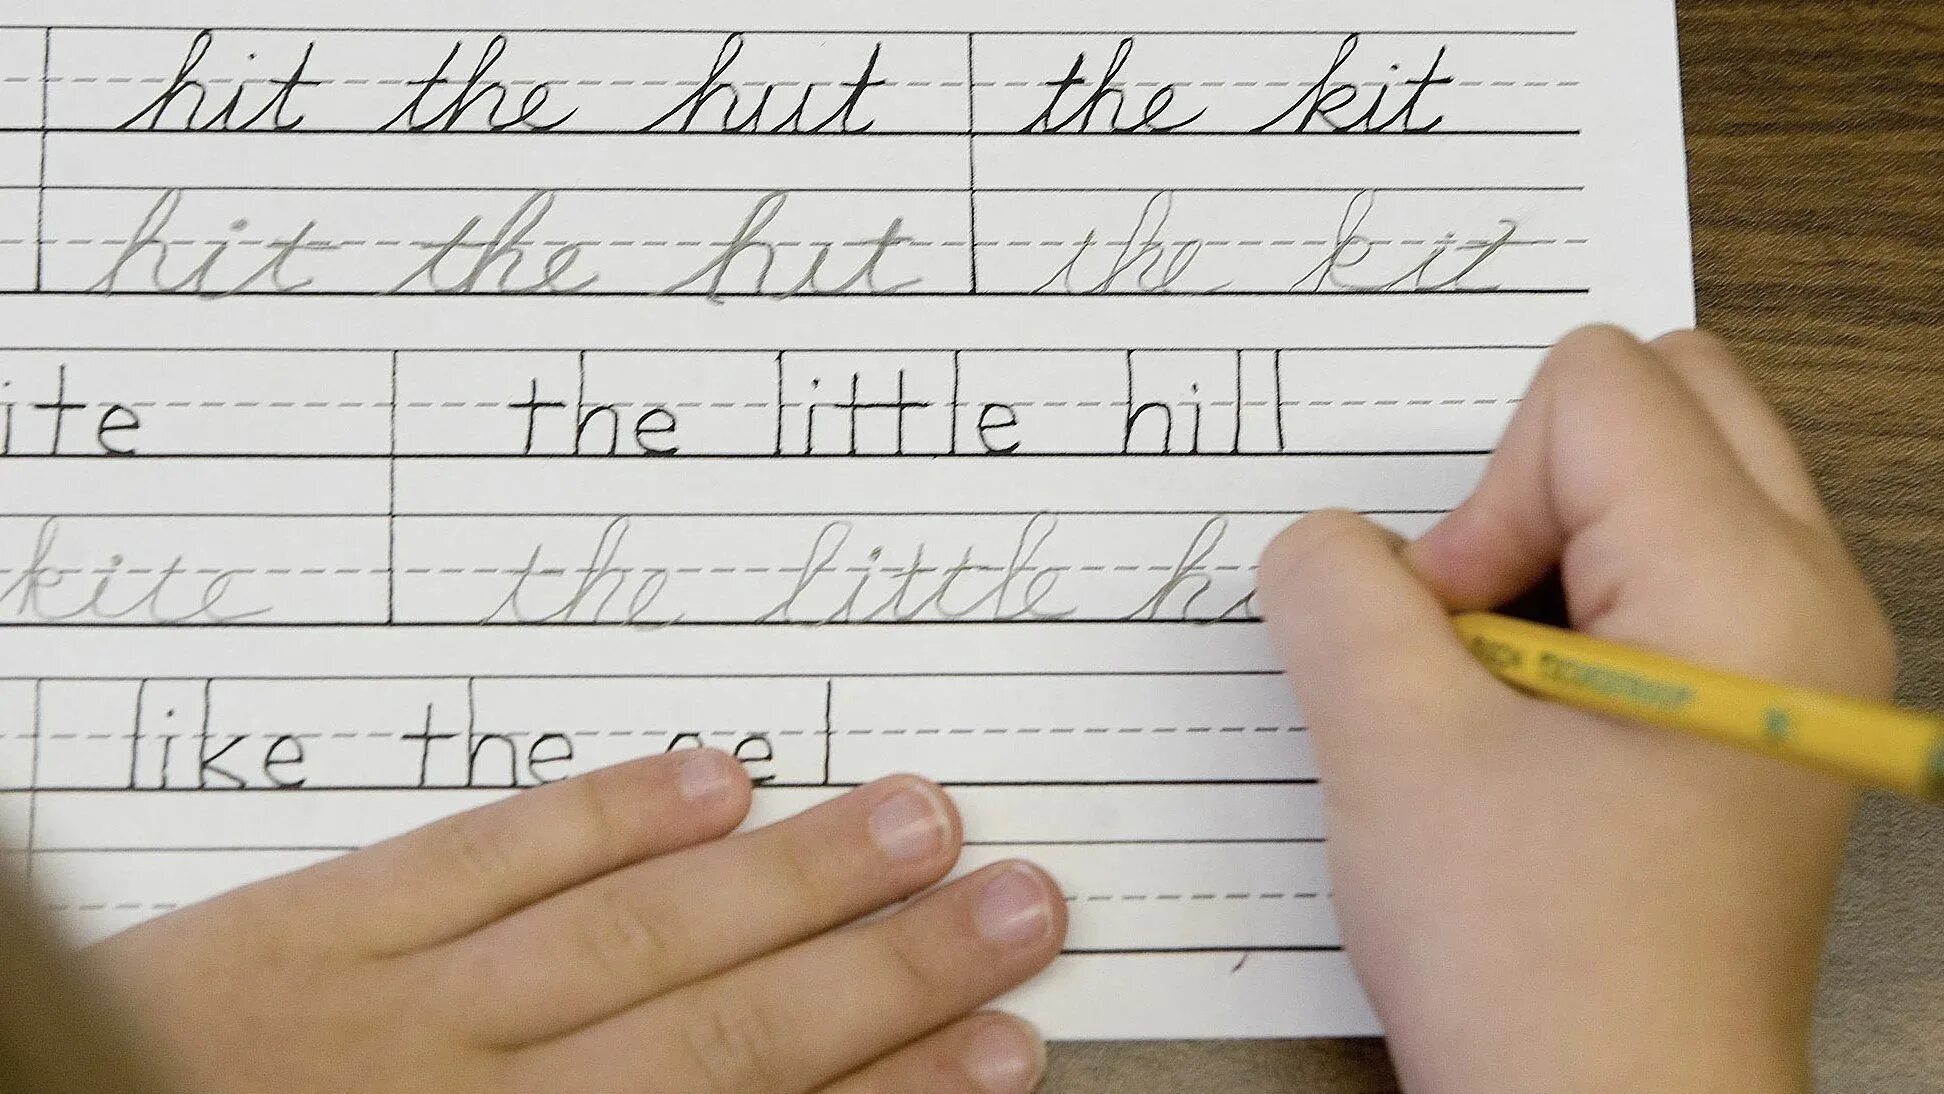 hit the hut the kit
hit the hut the kit
ite the little hill
kite the little hi
like the eel